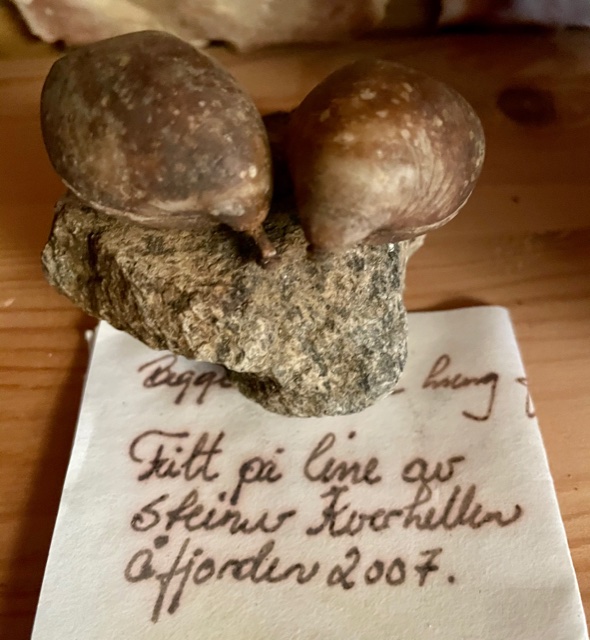 hung
Fått på line av
Steinar Kverhellen
Åfjorden 2007.